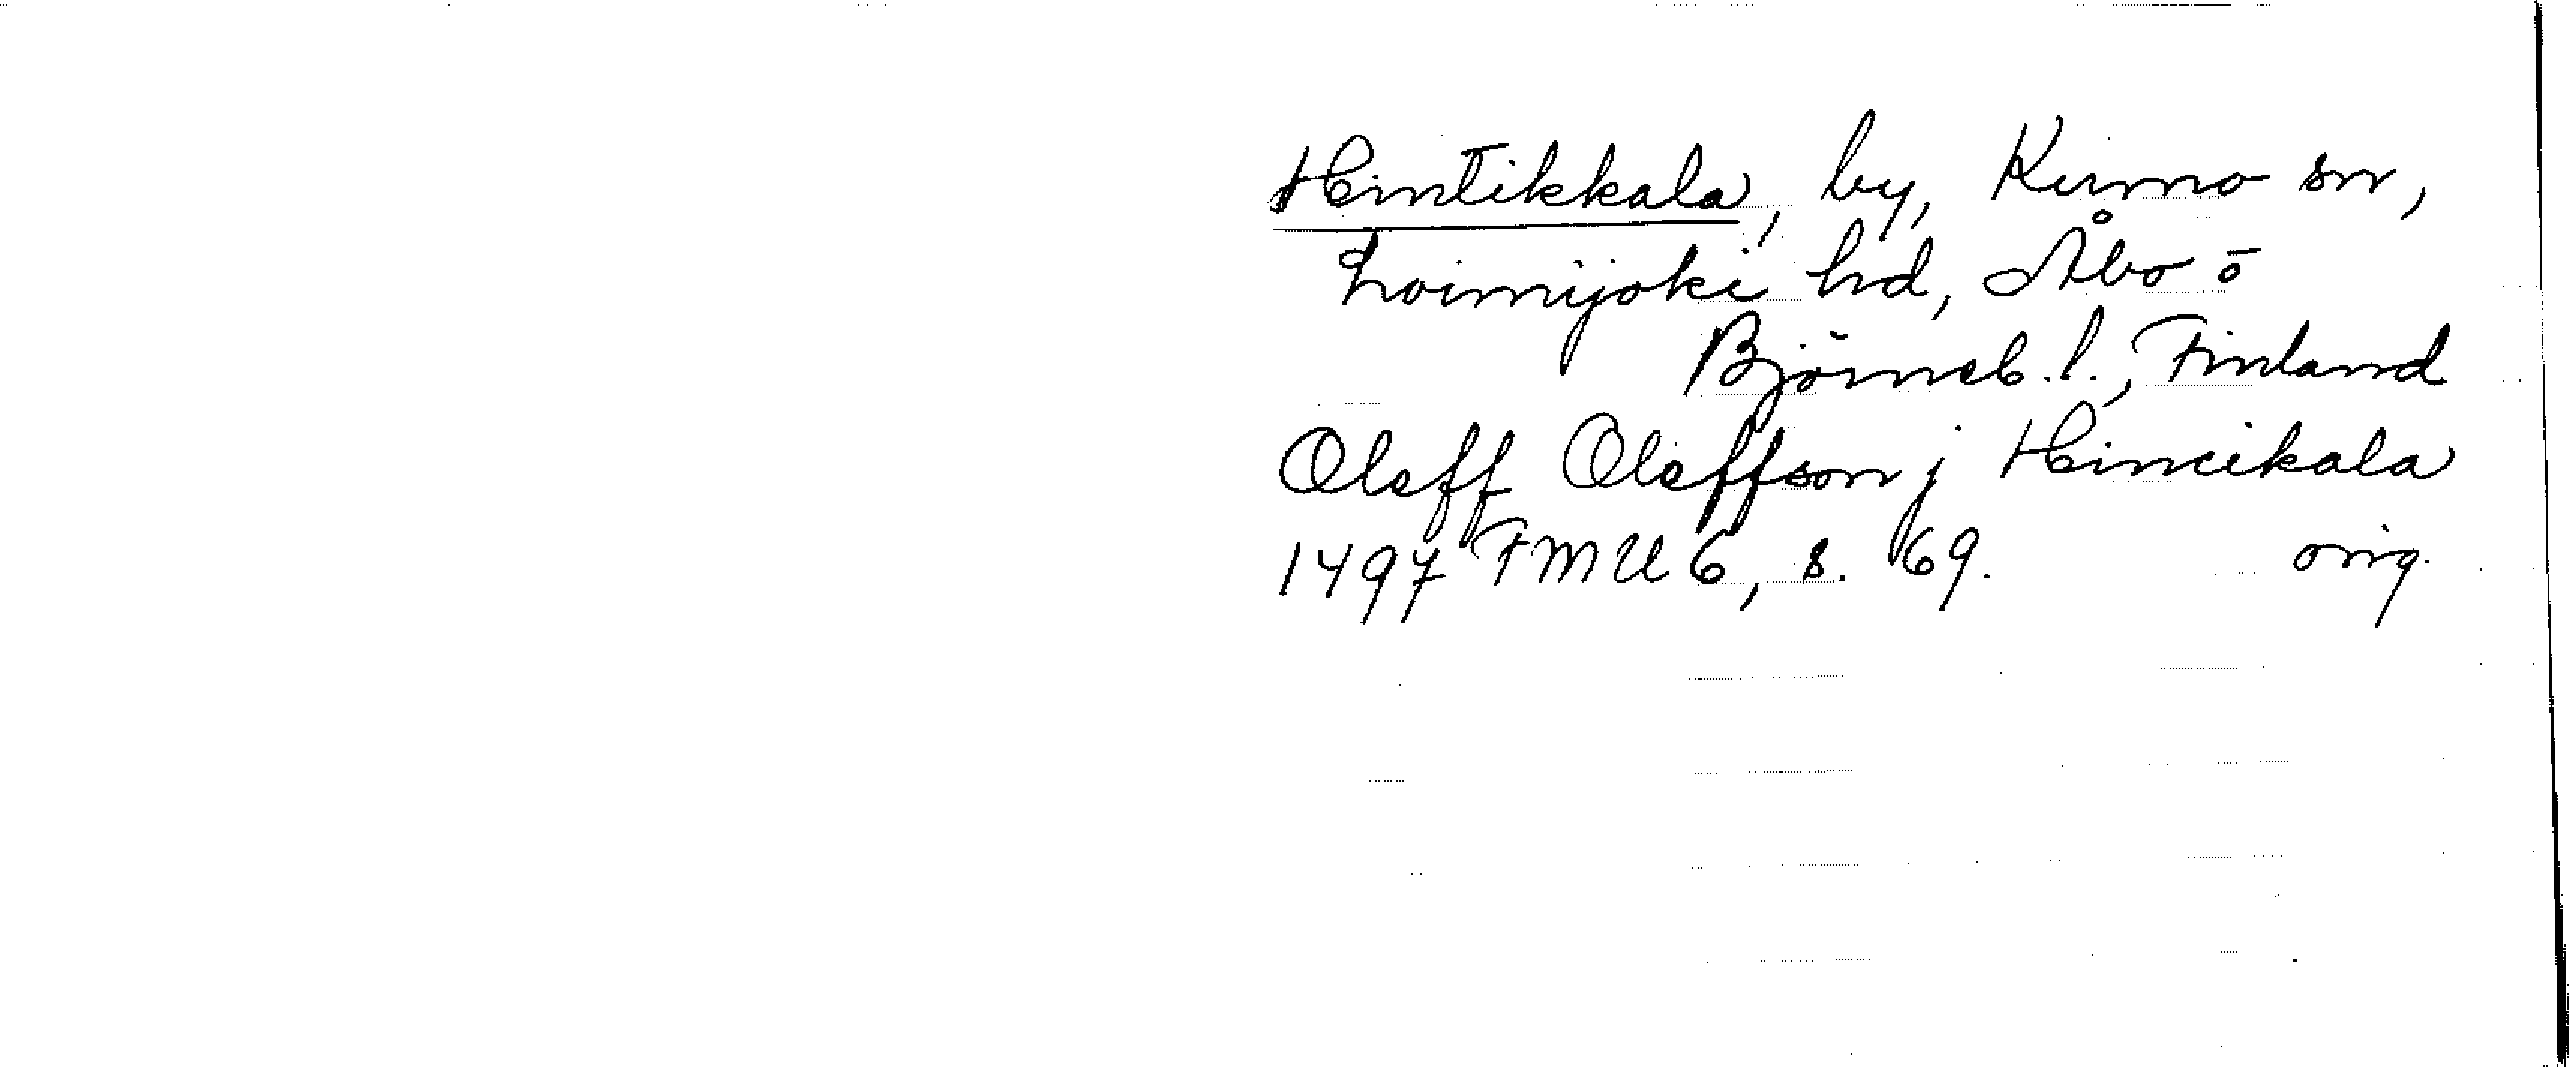 Hintikkala, by, Kumo sn,
Loimijoki hd, Åbo o
Björneb. l., Finland
Oleff Oleffson j Hincikala
1497 FMU 6, s. 69. orig.